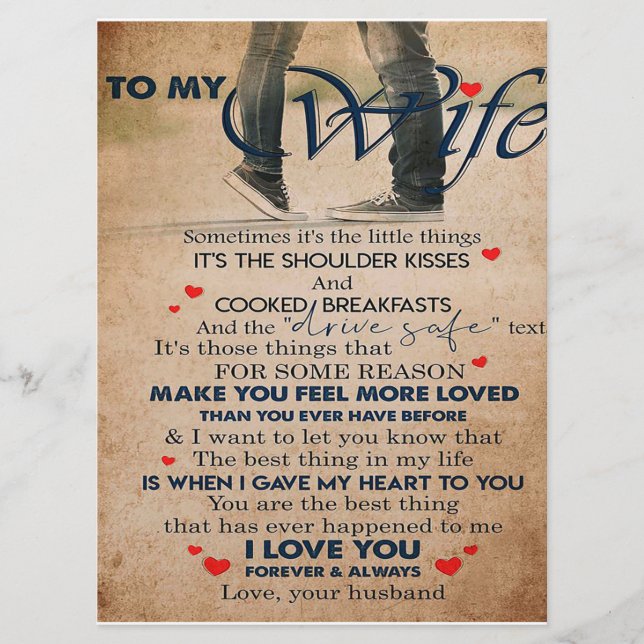 TO MY Wife
Sometimes it's the little things
IT'S THE SHOULDER KISSES
And
COOKED BREAKFASTS
And the "drive safe" text
It's those things that
FOR SOME REASON
MAKE YOU FEEL MORE LOVED
THAN YOU EVER HAVE BEFORE
& I want to let you know that
The best thing in my life
IS WHEN I GAVE MY HEART TO YOU
You are the best thing
that has ever happened to me
I LOVE YOU
FOREVER & ALWAYS
Love, your husband